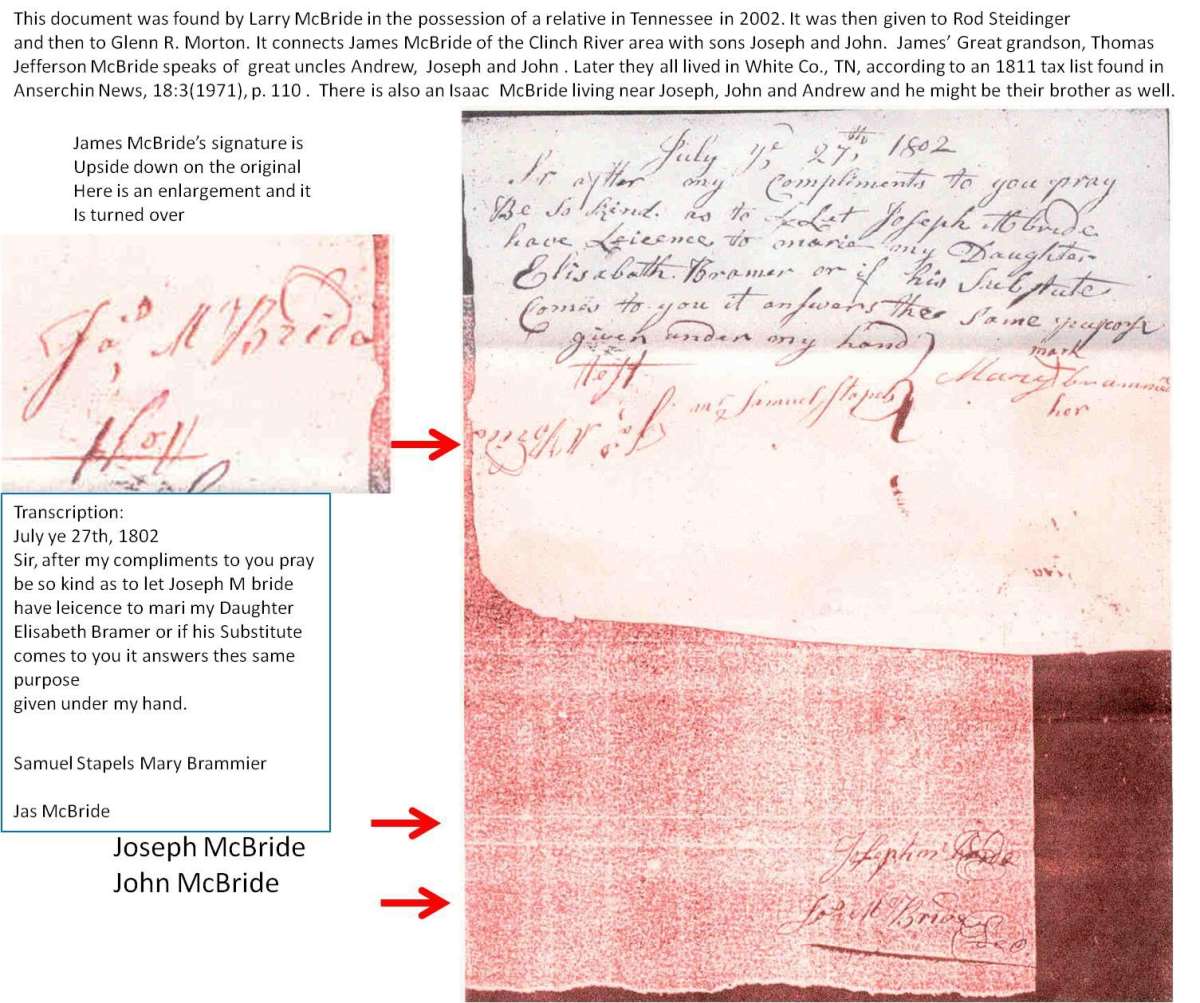 This document was found by Larry McBride in the possession of a relative in Tennessee in 2002. It was then given to Rod Steidinger
and then to Glenn R. Morton. It connects James McBride of the Clinch River area with sons Joseph and John.  James' Great grandson, Thomas
Jefferson McBride speaks of  great uncles Andrew,  Joseph and John . Later they all lived in White Co., TN, according to an 1811 tax list found in
Anserchin News, 18:3(1971), p. 110 .  There is also an Isaac  McBride living near Joseph, John and Andrew and he might be their brother as well.
James McBride's signature is
Upside down on the original
Here is an enlargement and it
Is turned over
Jas McBride
July ye 27th, 1802
Sr after my Compliments to you pray
Be So kind as to Let Joseph Mcbride
have Leicence to marie my Daughter
Elisabath Bramer or if his Substute
Comes to you it answers thes Same purpose
given under my hand
Test
mark
Samuel Stapels
Mary brammer
her
Jas McBride
Transcription:
July ye 27th, 1802
Sir, after my compliments to you pray
be so kind as to let Joseph M bride
have leicence to mari my Daughter
Elisabeth Bramer or if his Substitute
comes to you it answers thes same
purpose
given under my hand.
Samuel Stapels Mary Brammier
Jas McBride
Joseph McBride
John McBride
Joseph m Bride
Jo McBride